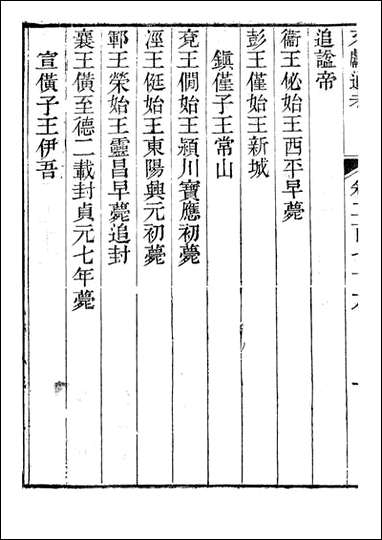 追諡帝
衞王佖始王西平早薨
彭王僅始王新城
鎮僅子王常山
兗王僩始王潁川寶應初薨
涇王侹始王東陽興元初薨
鄆王榮始王靈昌早薨追封
襄王僙至德二載封貞元七年薨
宣僙子王伊吾